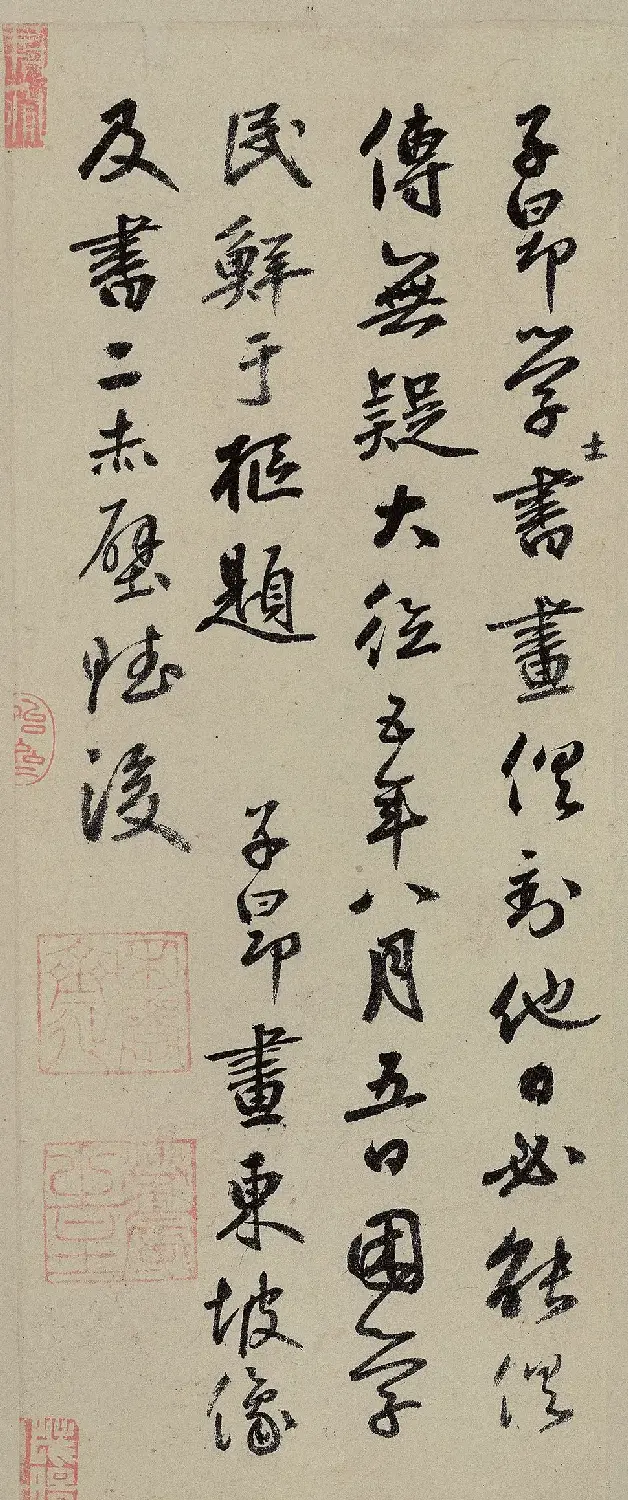 子昂学士書畫俱到他日必能俱
傳無疑大德五年八月五日困学
民鮮于樞題　子昂畫東坡像
及書二赤壁賦後